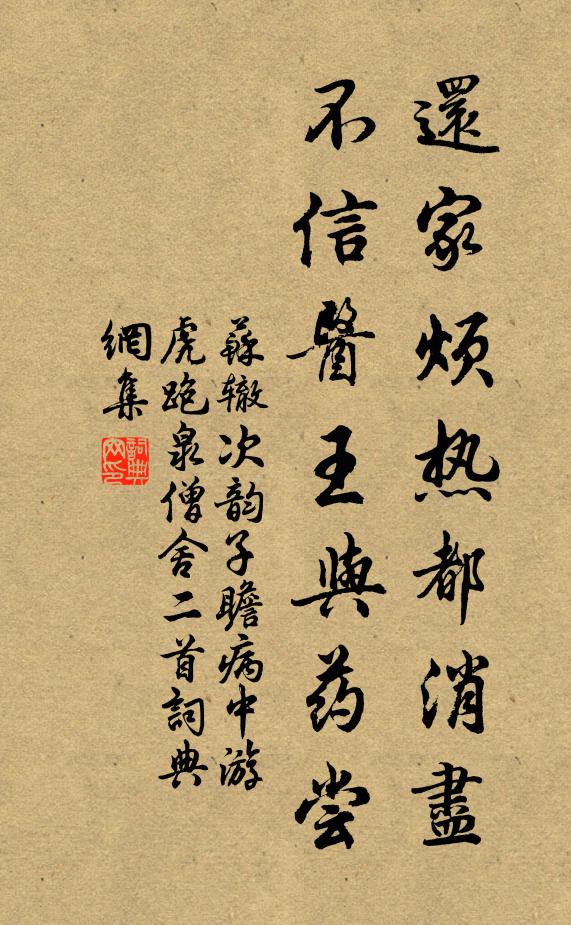 還家煩热都消盡
不信醫王與药尝
蘇辙次韵子瞻病中游
虎跑泉僧舍二首詞典
網集
詞典
网印